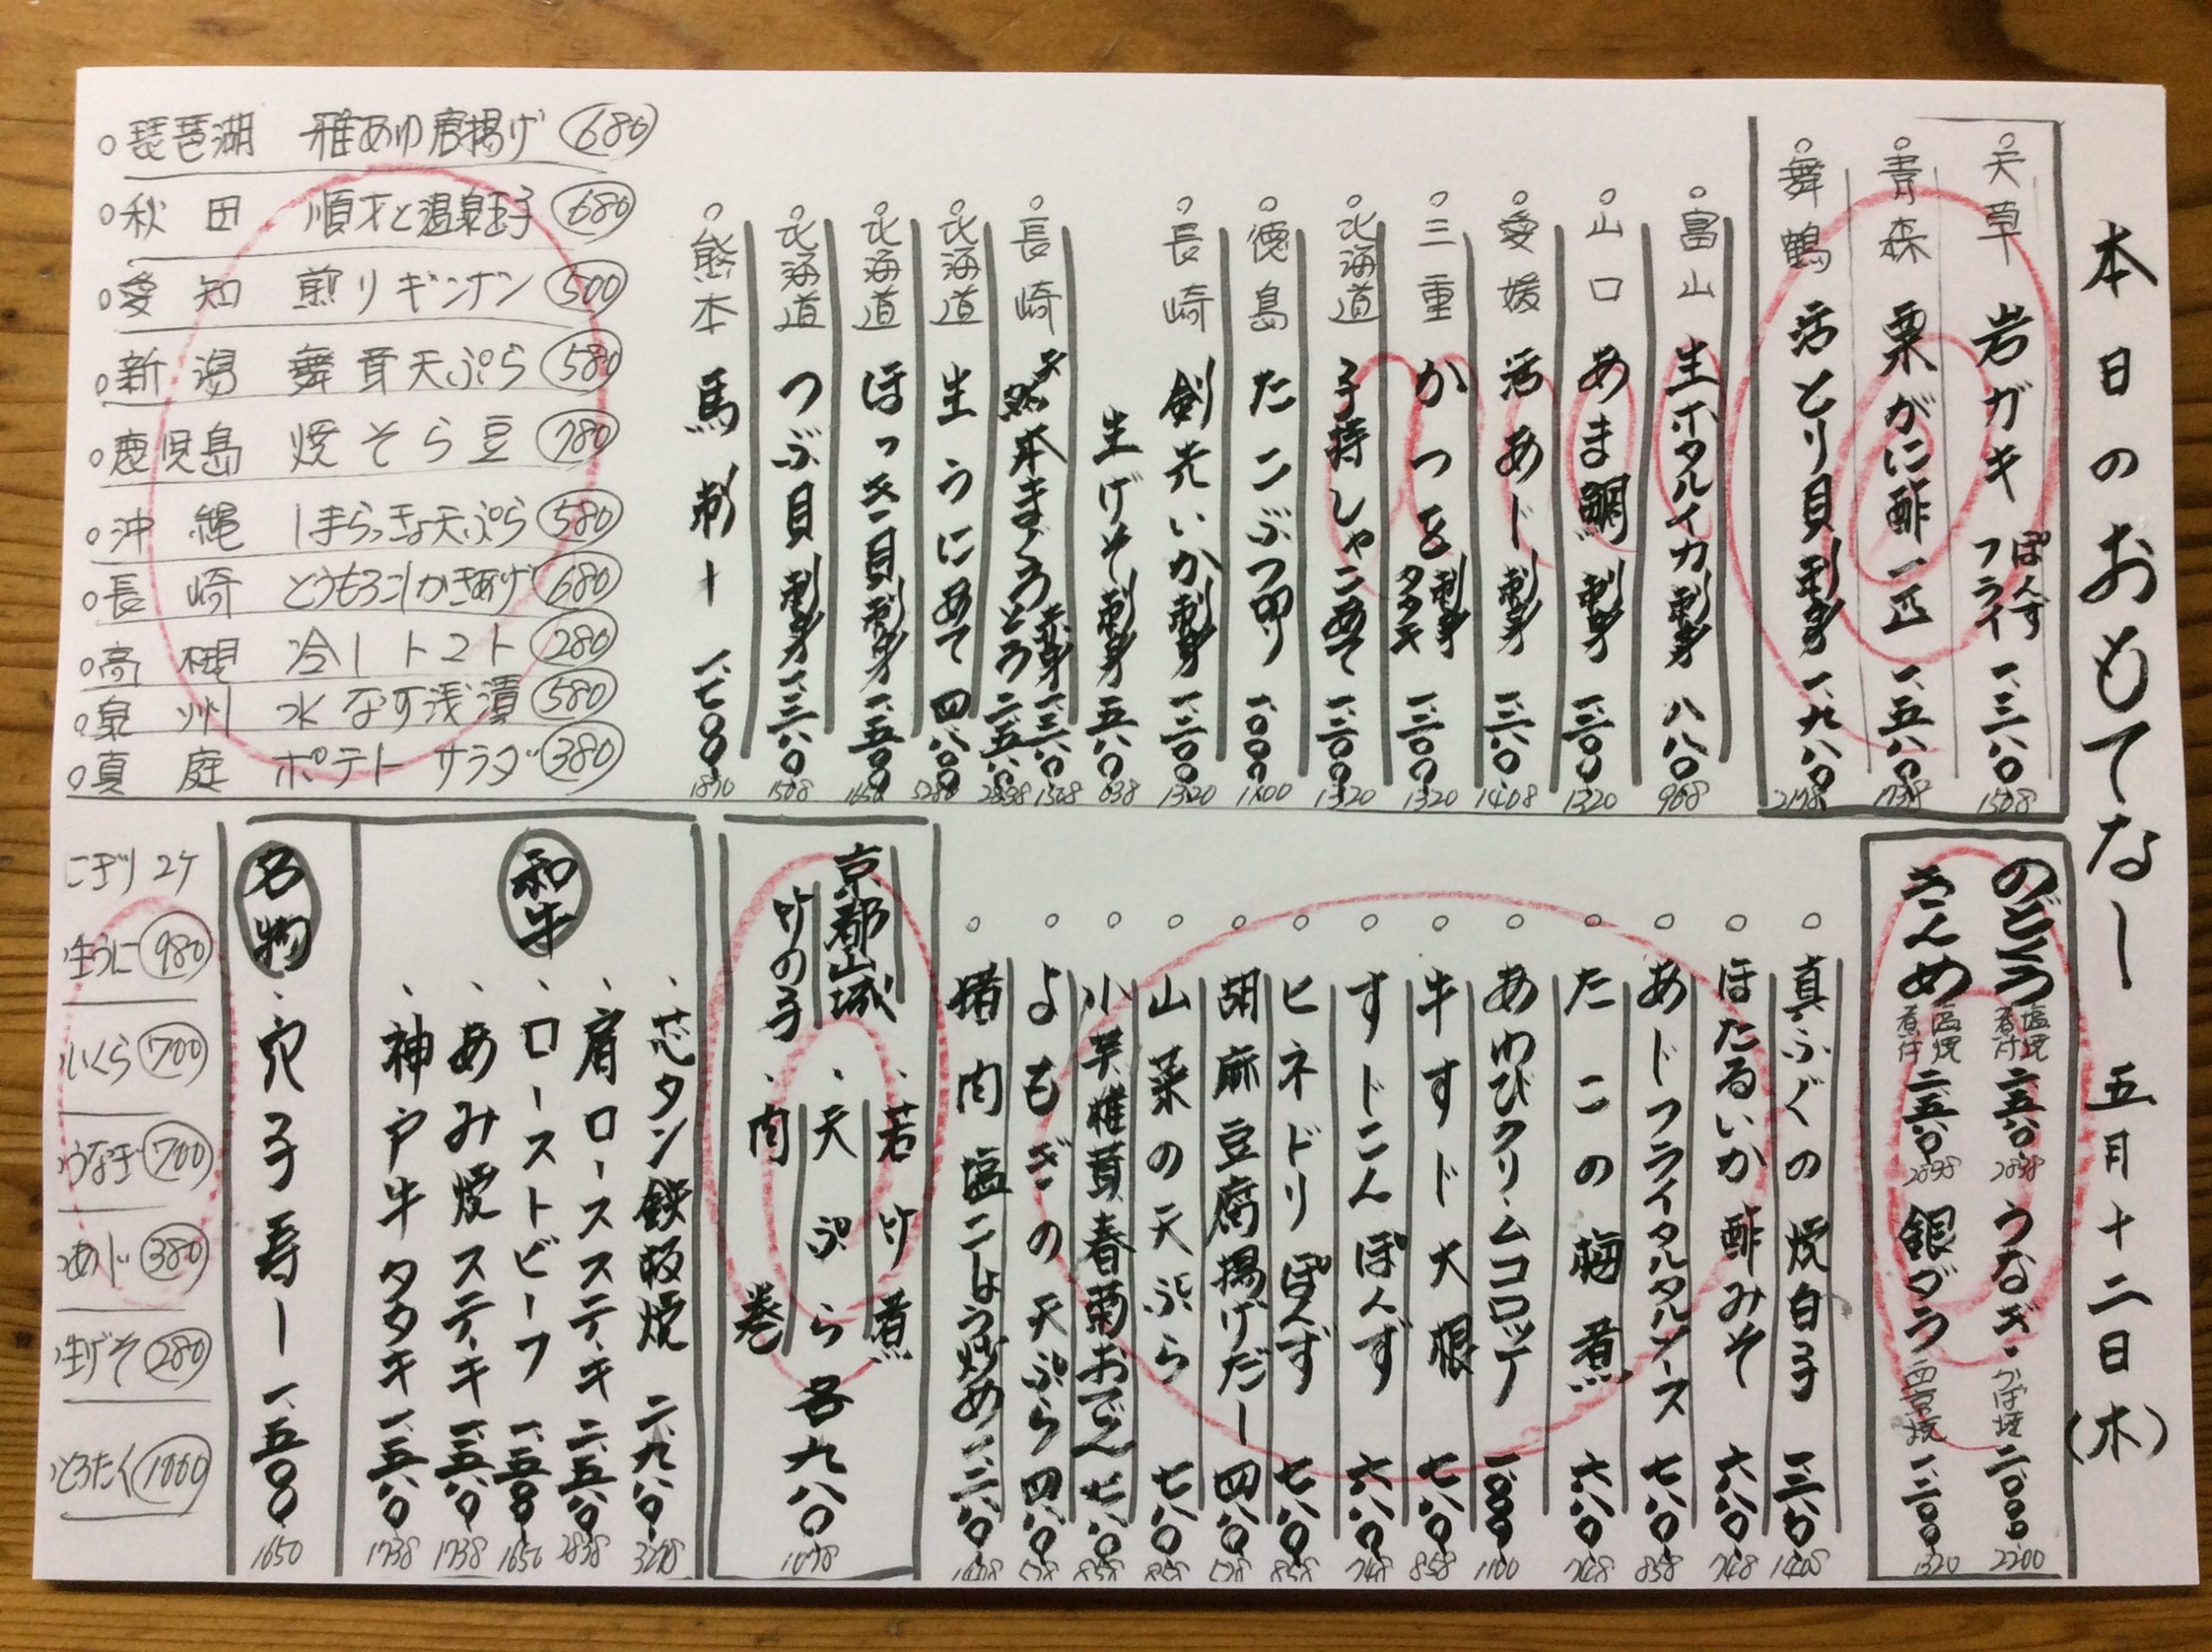 本日のおもてなし 五月十二日(木)
天草 岩ガキ ぽんず フライ 一、三八〇 1508
青森 栗がに酢 一匹 一、五八〇 1738
舞鶴 活とり貝刺身 一、九八〇 2178
富山 生ホタルイカ刺身 八八〇 968
山口 あま鯛刺身 一、二〇〇 1320
愛媛 活あじ刺身 一、二八〇 1408
三重 かつを 刺身 タタキ 一、二〇〇 1320
北海道 子持しゃこあて 一、二〇〇 1320
徳島 たこぶつ切り 一、〇〇〇 1100
長崎 剣先いか刺身 一、二〇〇 1320
生げそ刺身 五八〇 638
長崎 天然本まぐろ 赤身 一、三八〇 1518 とろ 二、五八〇 2838
北海道 生うにあて 四、八〇〇 5280
北海道 ほっき貝刺身 一、五〇〇 1650
北海道 つぶ貝刺身 一、三八〇 1518
熊本 馬刺し 一、七〇〇 1870
琵琶湖 稚あゆ唐揚げ 680
秋田 順才と温泉玉子 680
愛知 煎りギンナン 500
新潟 舞茸天ぷら 580
鹿児島 焼そら豆 780
沖縄 しまらっきょ天ぷら 580
長崎 とうもろこしかきあげ 680
高槻 冷しトマト 280
泉州 水なす浅漬 580
真庭 ポテトサラダ 380
のどぐろ 塩焼 煮付 二、五八〇 2838 うなぎ・かば焼 二、〇〇〇 2200
きんめ 塩焼 煮付 二、五八〇 2838 銀ダラ 西京焼 一、二〇〇 1320
真ふぐの焼白子 一、二八〇 1408
ほたるいか酢みそ 六八〇 748
あじフライタルタルソース 七八〇 858
たこの梅煮 六八〇 748
あわびクリームコロッケ 一、〇〇〇 1100
牛すじ大根 七八〇 858
すじこんぽんず 六八〇 748
ヒネドリぽんず 七八〇 858
胡麻豆腐揚げだし 四八〇 528
山菜の天ぷら 七八〇 858
小芋椎茸春菊おでん 七八〇 858
よもぎの天ぷら 四八〇 528
猪肉塩こしょう炒め 一、二八〇 1408
京都山城 竹の子
、若竹煮
、天ぷら 各九八〇 1078
、肉巻
和牛
、芯タン鉄板焼 二、九八〇 3278
、肩ロースステーキ 二、五八〇 2838
、ローストビーフ 一、五〇〇 1650
、あみ焼ステーキ 一、五八〇 1738
、神戸牛タタキ 一、五八〇 1738
名物、穴子寿し 一、五〇〇 1650
にぎり 2ケ
、生うに 980
、いくら 700
、うなぎ 700
、あじ 380
、生げそ 280
、とろたく 1000